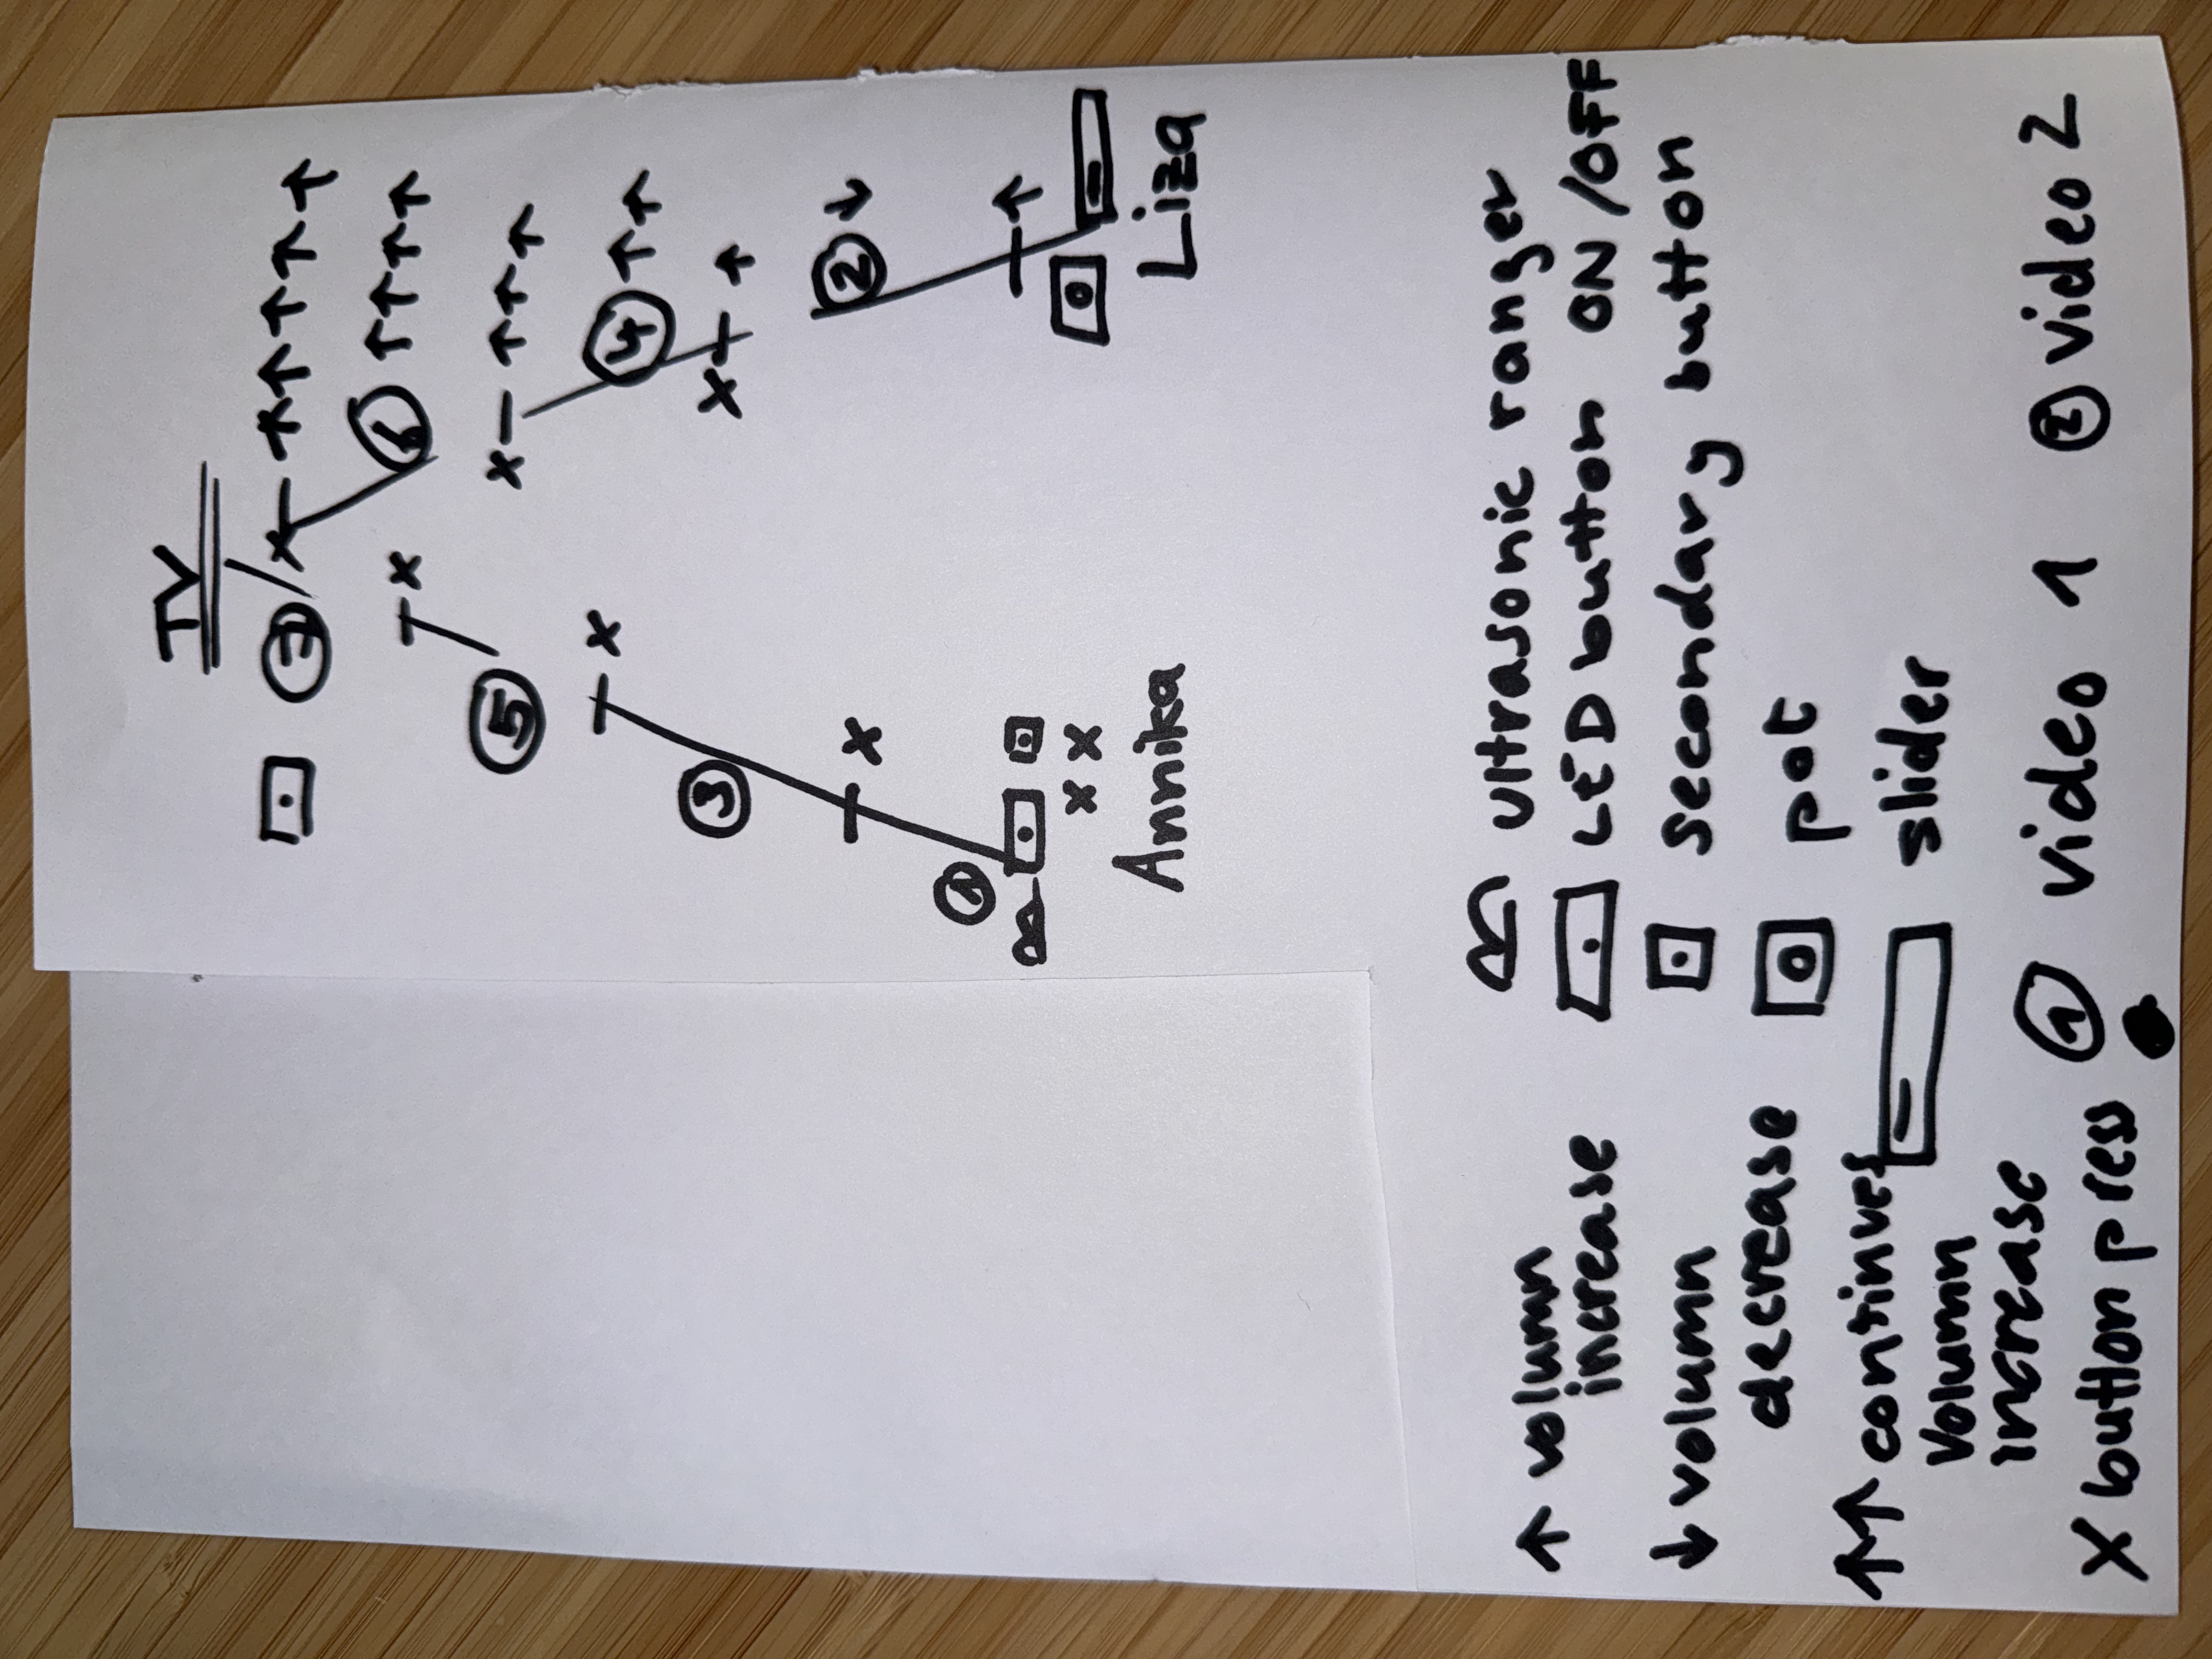 TV
7
↑↑↑↑↑
x
6
↑↑↑↑
x
5
x
↑↑↑
x
4
↑↑
3
x
↑
x
2
↓
1
↑
x x
Annika
Liza
↑ volumn increase
↓ volumn
decrease
↑↑ continues
Volumn
increase
x button press
ultrasonic ranger
LED button ON/OFF
secondary button
pot
slider
1 video 1
2 video 2